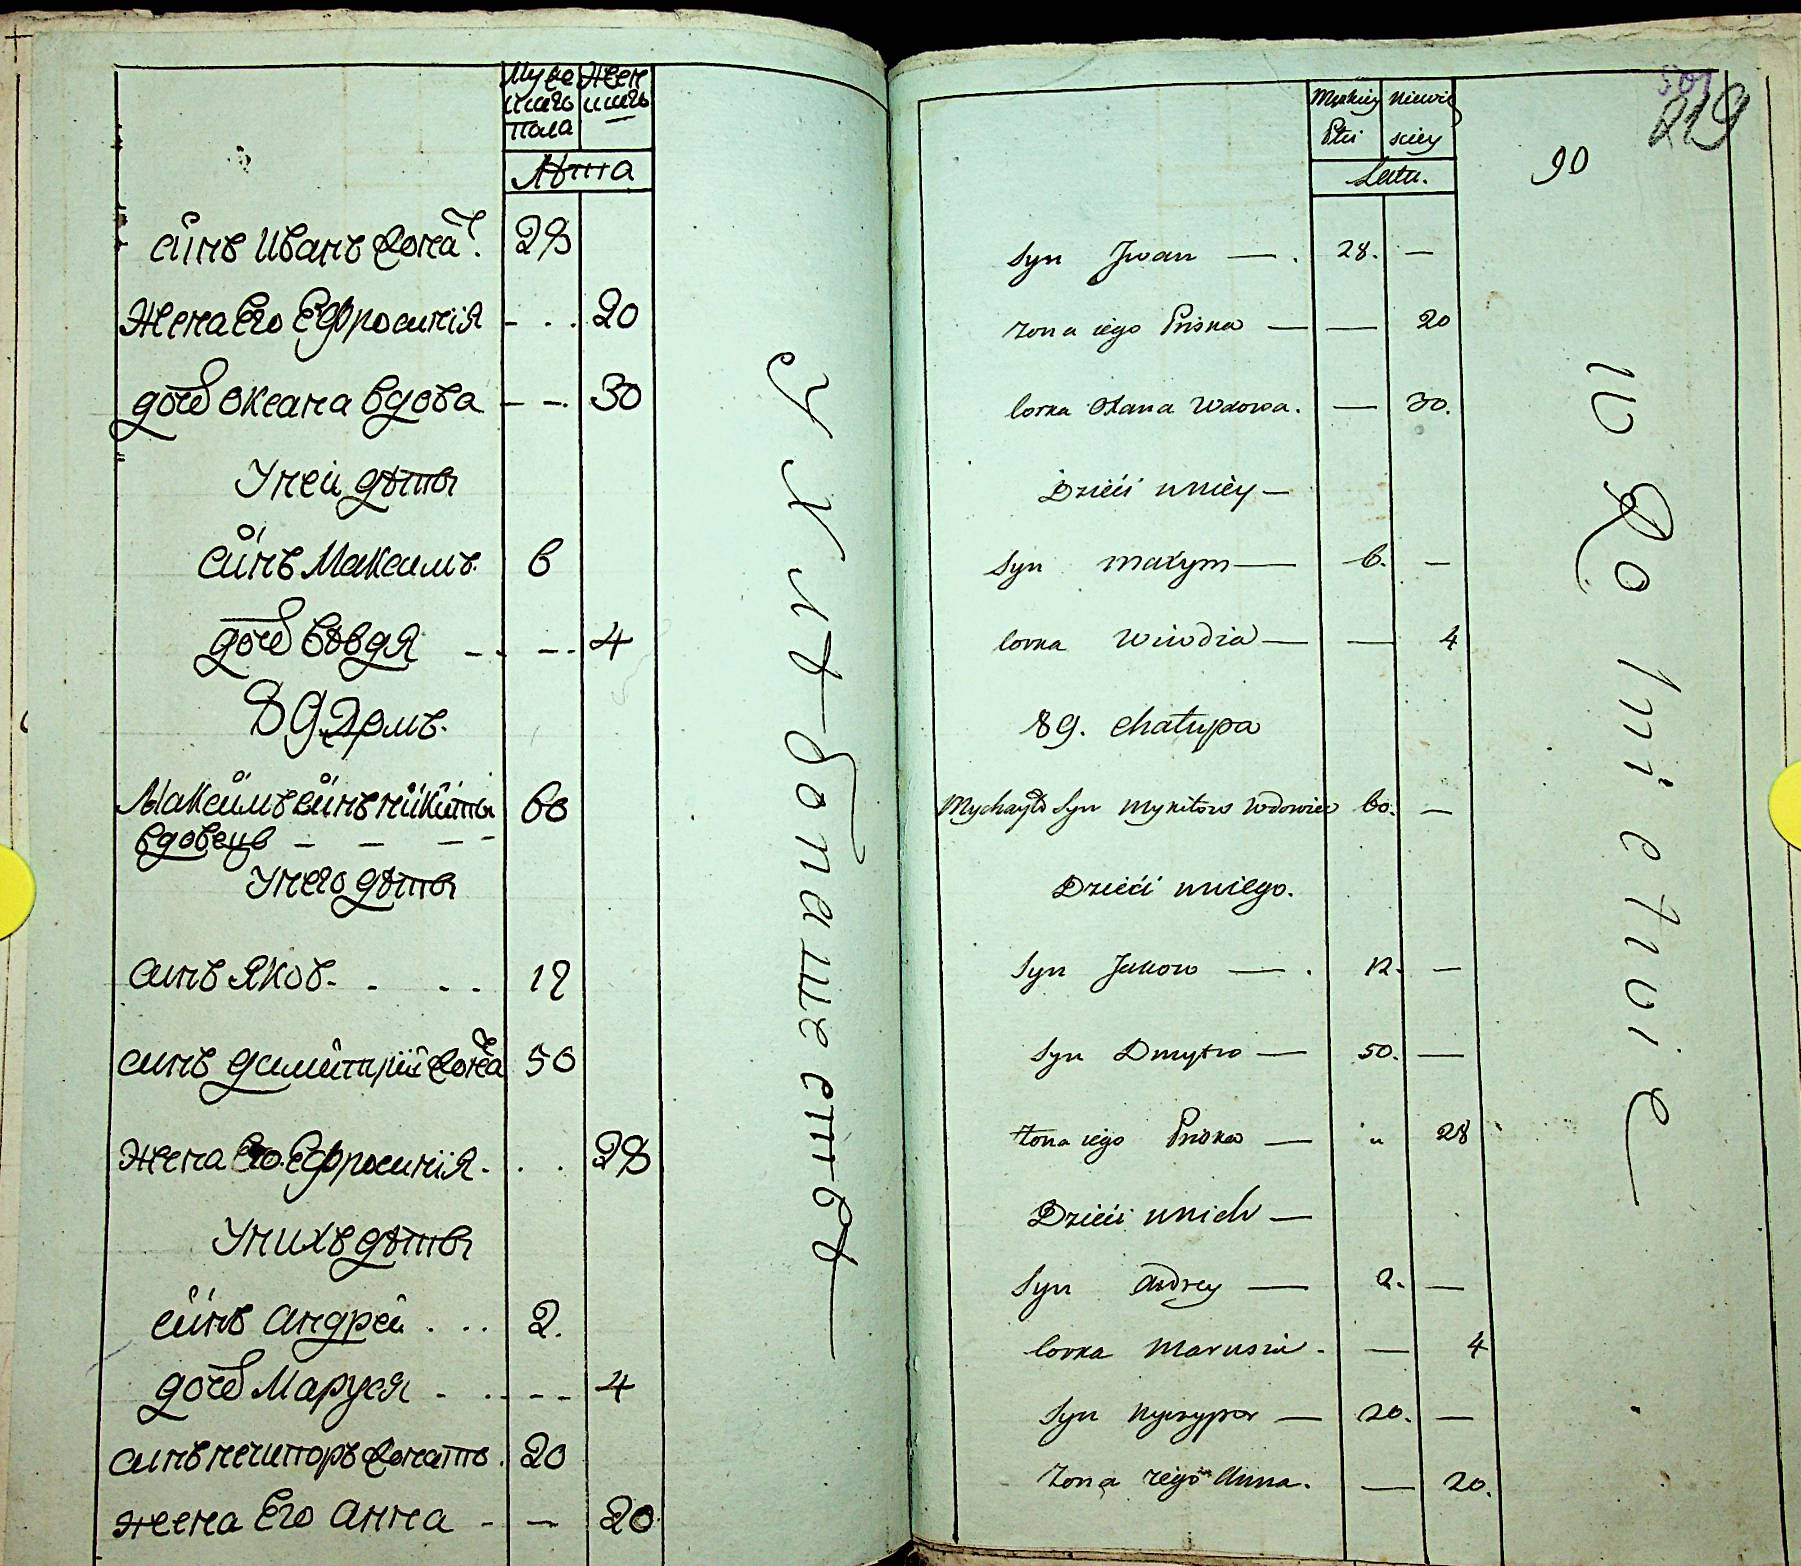 Муже Жен
ншего ншего
пола
Лѣта
синъ Иванъ жона͠т. 28
жена Его Ефросинія - . . 20
дочь Оксана вдова - - . 30
У неи дѣти
синъ Максимъ 6
дочь Вовдя - . - . . 4
89 Домъ.
Максимъ синъ Никиты 60
вдовецъ - - - -
У него дѣти
синъ Яков - . . . 12
синъ Димитрій жона͠т 50
жена Его Ефросинія . . . 28
У нихъ дѣти
синъ Андрей . . . 2.
дочь Маруся . . . - - 4
синъ Нечипоръ жонатъ . 20
жена Его Анна - - 20
у Хлѣбопашествѣ
Męzkiey Niewie
Płci sciey
Latu.
501
219
90
Syn Jwan — . 28. —
żona iego Priska — — 20
Corka Oxana Wdowa. — 30.
Dzieći uniéy —
Syn Maxym — 6. —
Corka Wiwdia — — 4
89. Chałupa
Mychayło Syn Mykitow Wdowiec 60. —
Dzieći uniego.
Syn Jakow — . 12. —
Syn Dmytro — 50. —
żona iego Priska — " 28
Dzieći unich —
Syn Andrey — 2. —
Corka Marusia . — 4
Syn Nyczypor — 20. —
Żona iego Anna. — 20.
w Rolnictwie